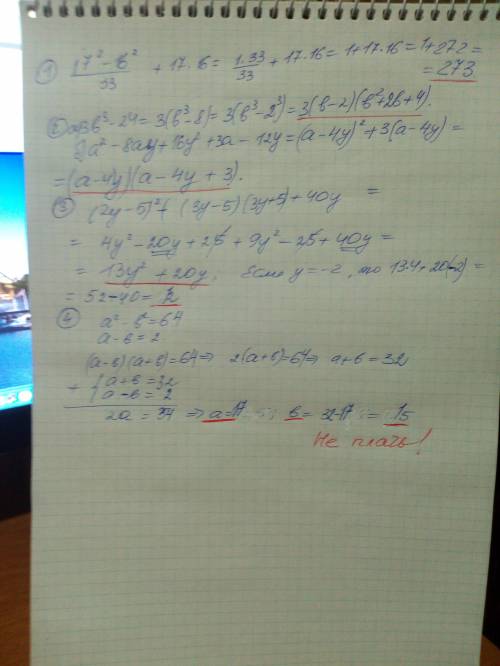 ① 17² - 16² / 33 + 17·16 = 1·33 / 33 + 17·16 = 1+17·16 = 1+272 =
= 273
② a) 3b³-24 = 3(b³-8) = 3(b³-2³) = 3(b-2)(b²+2b+4).
a²-8ay+16y²+3a-12y = (a-4y)²+3(a-4y) =
= (a-4y)(a-4y+3).
③ (2y-5)²+(3y-5)(3y+5)+40y =
= 4y²-20y+25+9y²-25+40y =
= 13y²+20y, Если y=-2, то 13·4+20(-2) =
= 52-40 = 12
④ a²-b²=64
a-b=2
(a-b)(a+b)=64 ⇒ 2(a+b)=64 ⇒ a+b=32
+ { a+b=32
a-b=2
2a = 34 ⇒ a=17 b = 32-17 = 15
Не плачь!